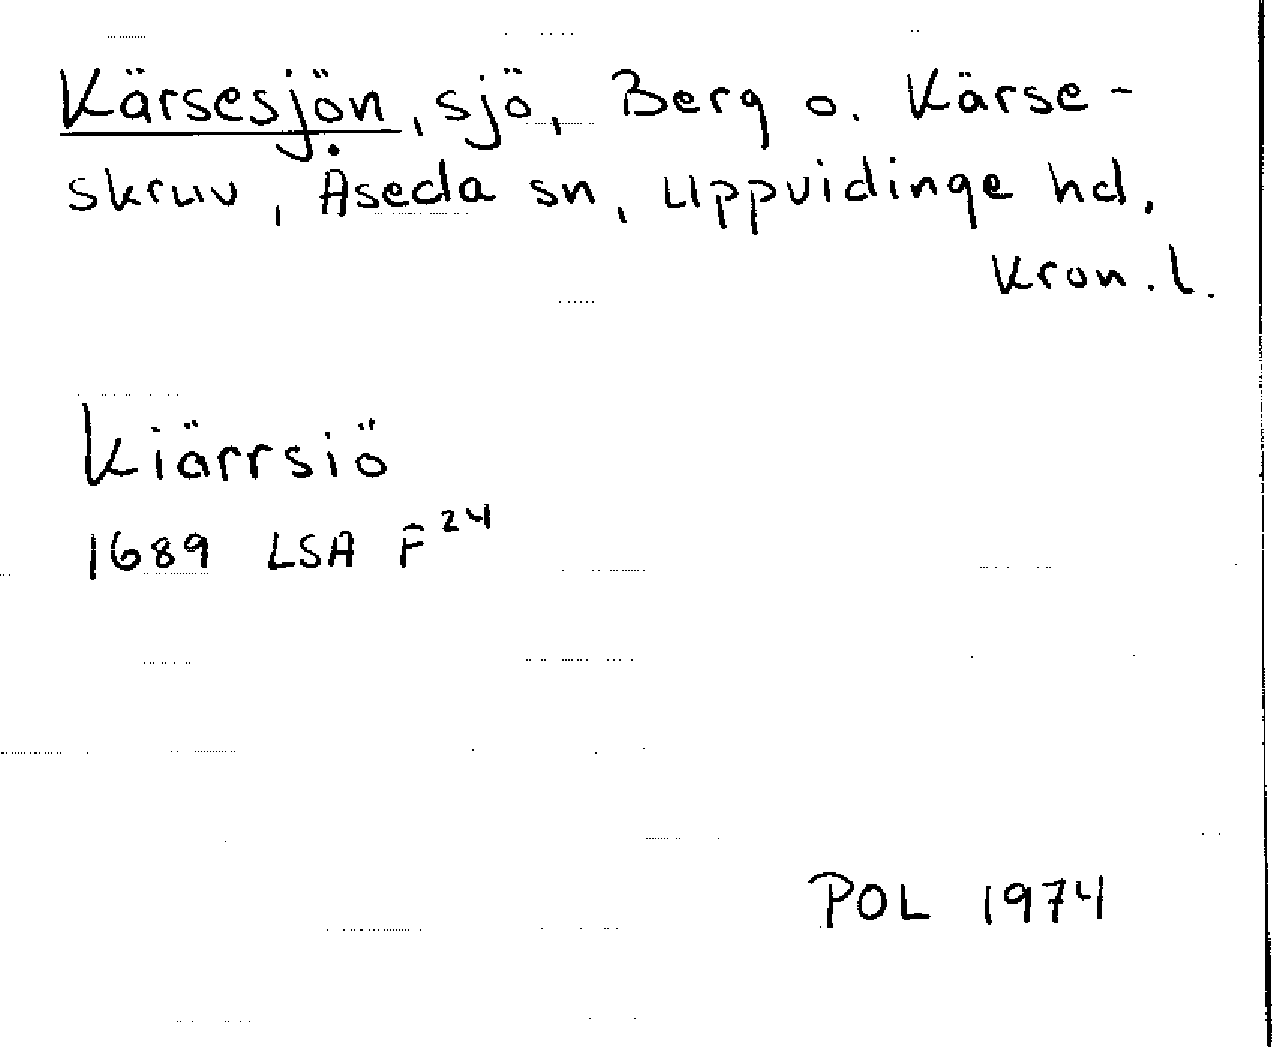 Kärsesjön, sjö, Berg o. Kärse-
skruv, Åseda sn, Uppvidinge hd.
Kron. l.
Kiärrsiö
1689 LSA F²⁴
POL 1974